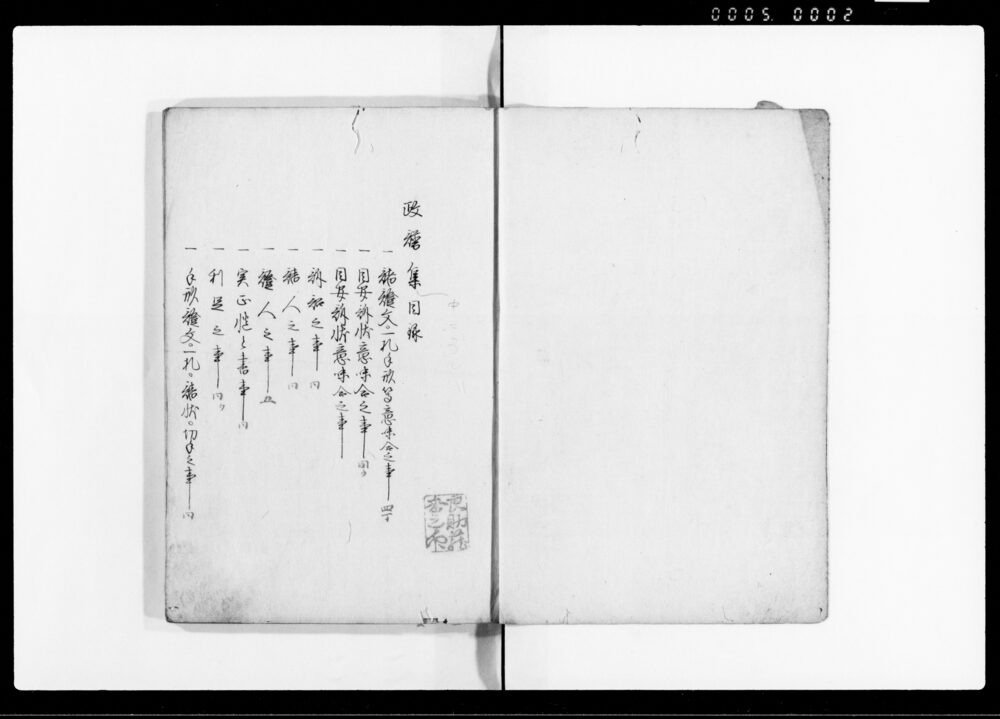 0005. 0002
政 集目録
一 諸證文。一札手形等意味合之事 四丁
一 目安訴状意味合之事 同
一 目安訴状意味合之事
一 訴訟之事 同
一 諸人之事 同
一 證人之事 五
一 実正慥と書事 同
一 利足之事 同
一 手形證文。一札。諸状。切手之事 同